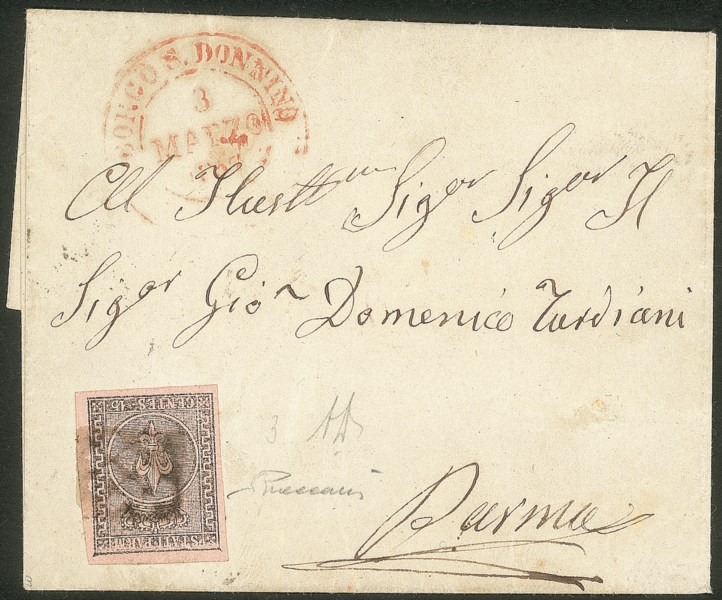 BORGO S. DONNINO
3
MARZO
Al Illustt.mo Sigor Sigor Il
Sigor Gio.n Domenico Tardiani
CENTES. 15
STATI PARM.
3
Parma